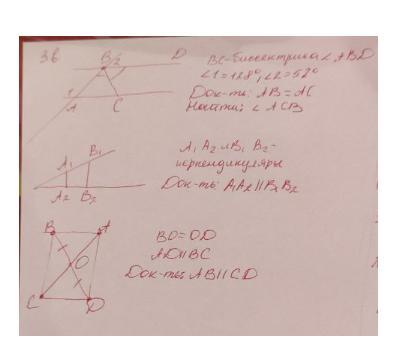 3в
B/2 D
1 A C
BC-биссектриса ∠ABD
∠1=128°, ∠2=52°
Док-ть: AB=AC
Найти: ∠ACB
A₁ B₁
A₂ B₂
A₁A₂ и B₁B₂-
перпендикуляры
Док-ть: A₁A₂||B₁B₂
B A
O
C D
BO=OD
AD||BC
Док-ть: AB||CD